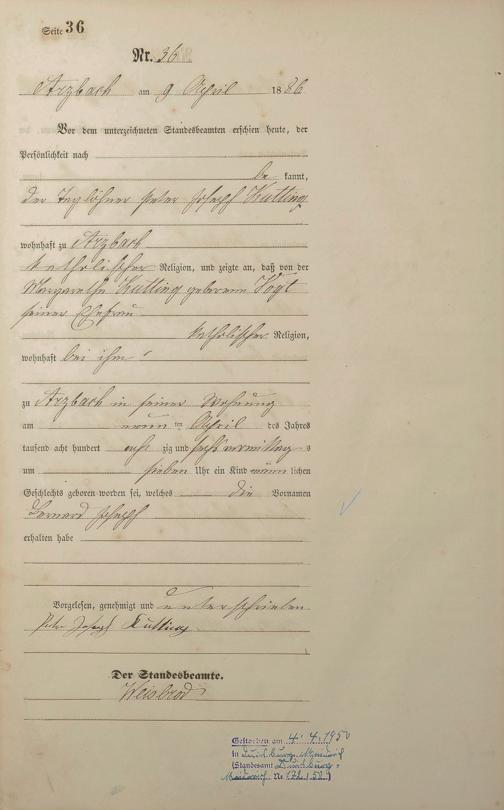 Seite 36
Nr. 36
Arzbach am 9 April 1886
Vor dem unterzeichneten Standesbeamten erschien heute, der
Persönlichkeit nach
be kannt,
der Taglöhner Peter Joseph Kutting
wohnhaft zu Arzbach
katholischer Religion, und zeigte an, daß von der
Margarethe Kutting geborenen Vogt
seiner Ehefrau
katholischer Religion,
wohnhaft bei ihm
zu Arzbach in seiner Wohnung
am neun ten April des Jahres
tausend acht hundert acht zig und sechs vormittag s
um sieben Uhr ein Kind männ lichen
Geschlechts geboren worden sei, welches die Vornamen
Bernard Joseph
erhalten habe
Vorgelesen, genehmigt und unterschrieben
Peter Joseph Kutting
Der Standesbeamte.
Weisbrod
Gestorben am 4. 4. 1950
in Duisburg-
(Standesamt Duisburg-
Nr